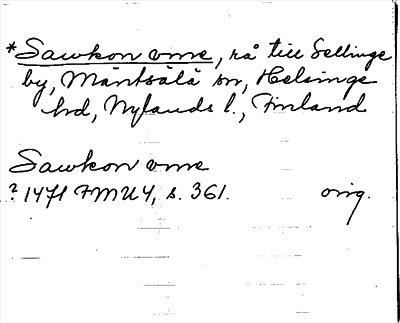 *Sawkon vme, rå till Sellinge
by, Mäntsälä sn, Helsinge
hd, Nylands l., Finland
Sawkon vme
? 1471 FMU 4, s. 361. orig.